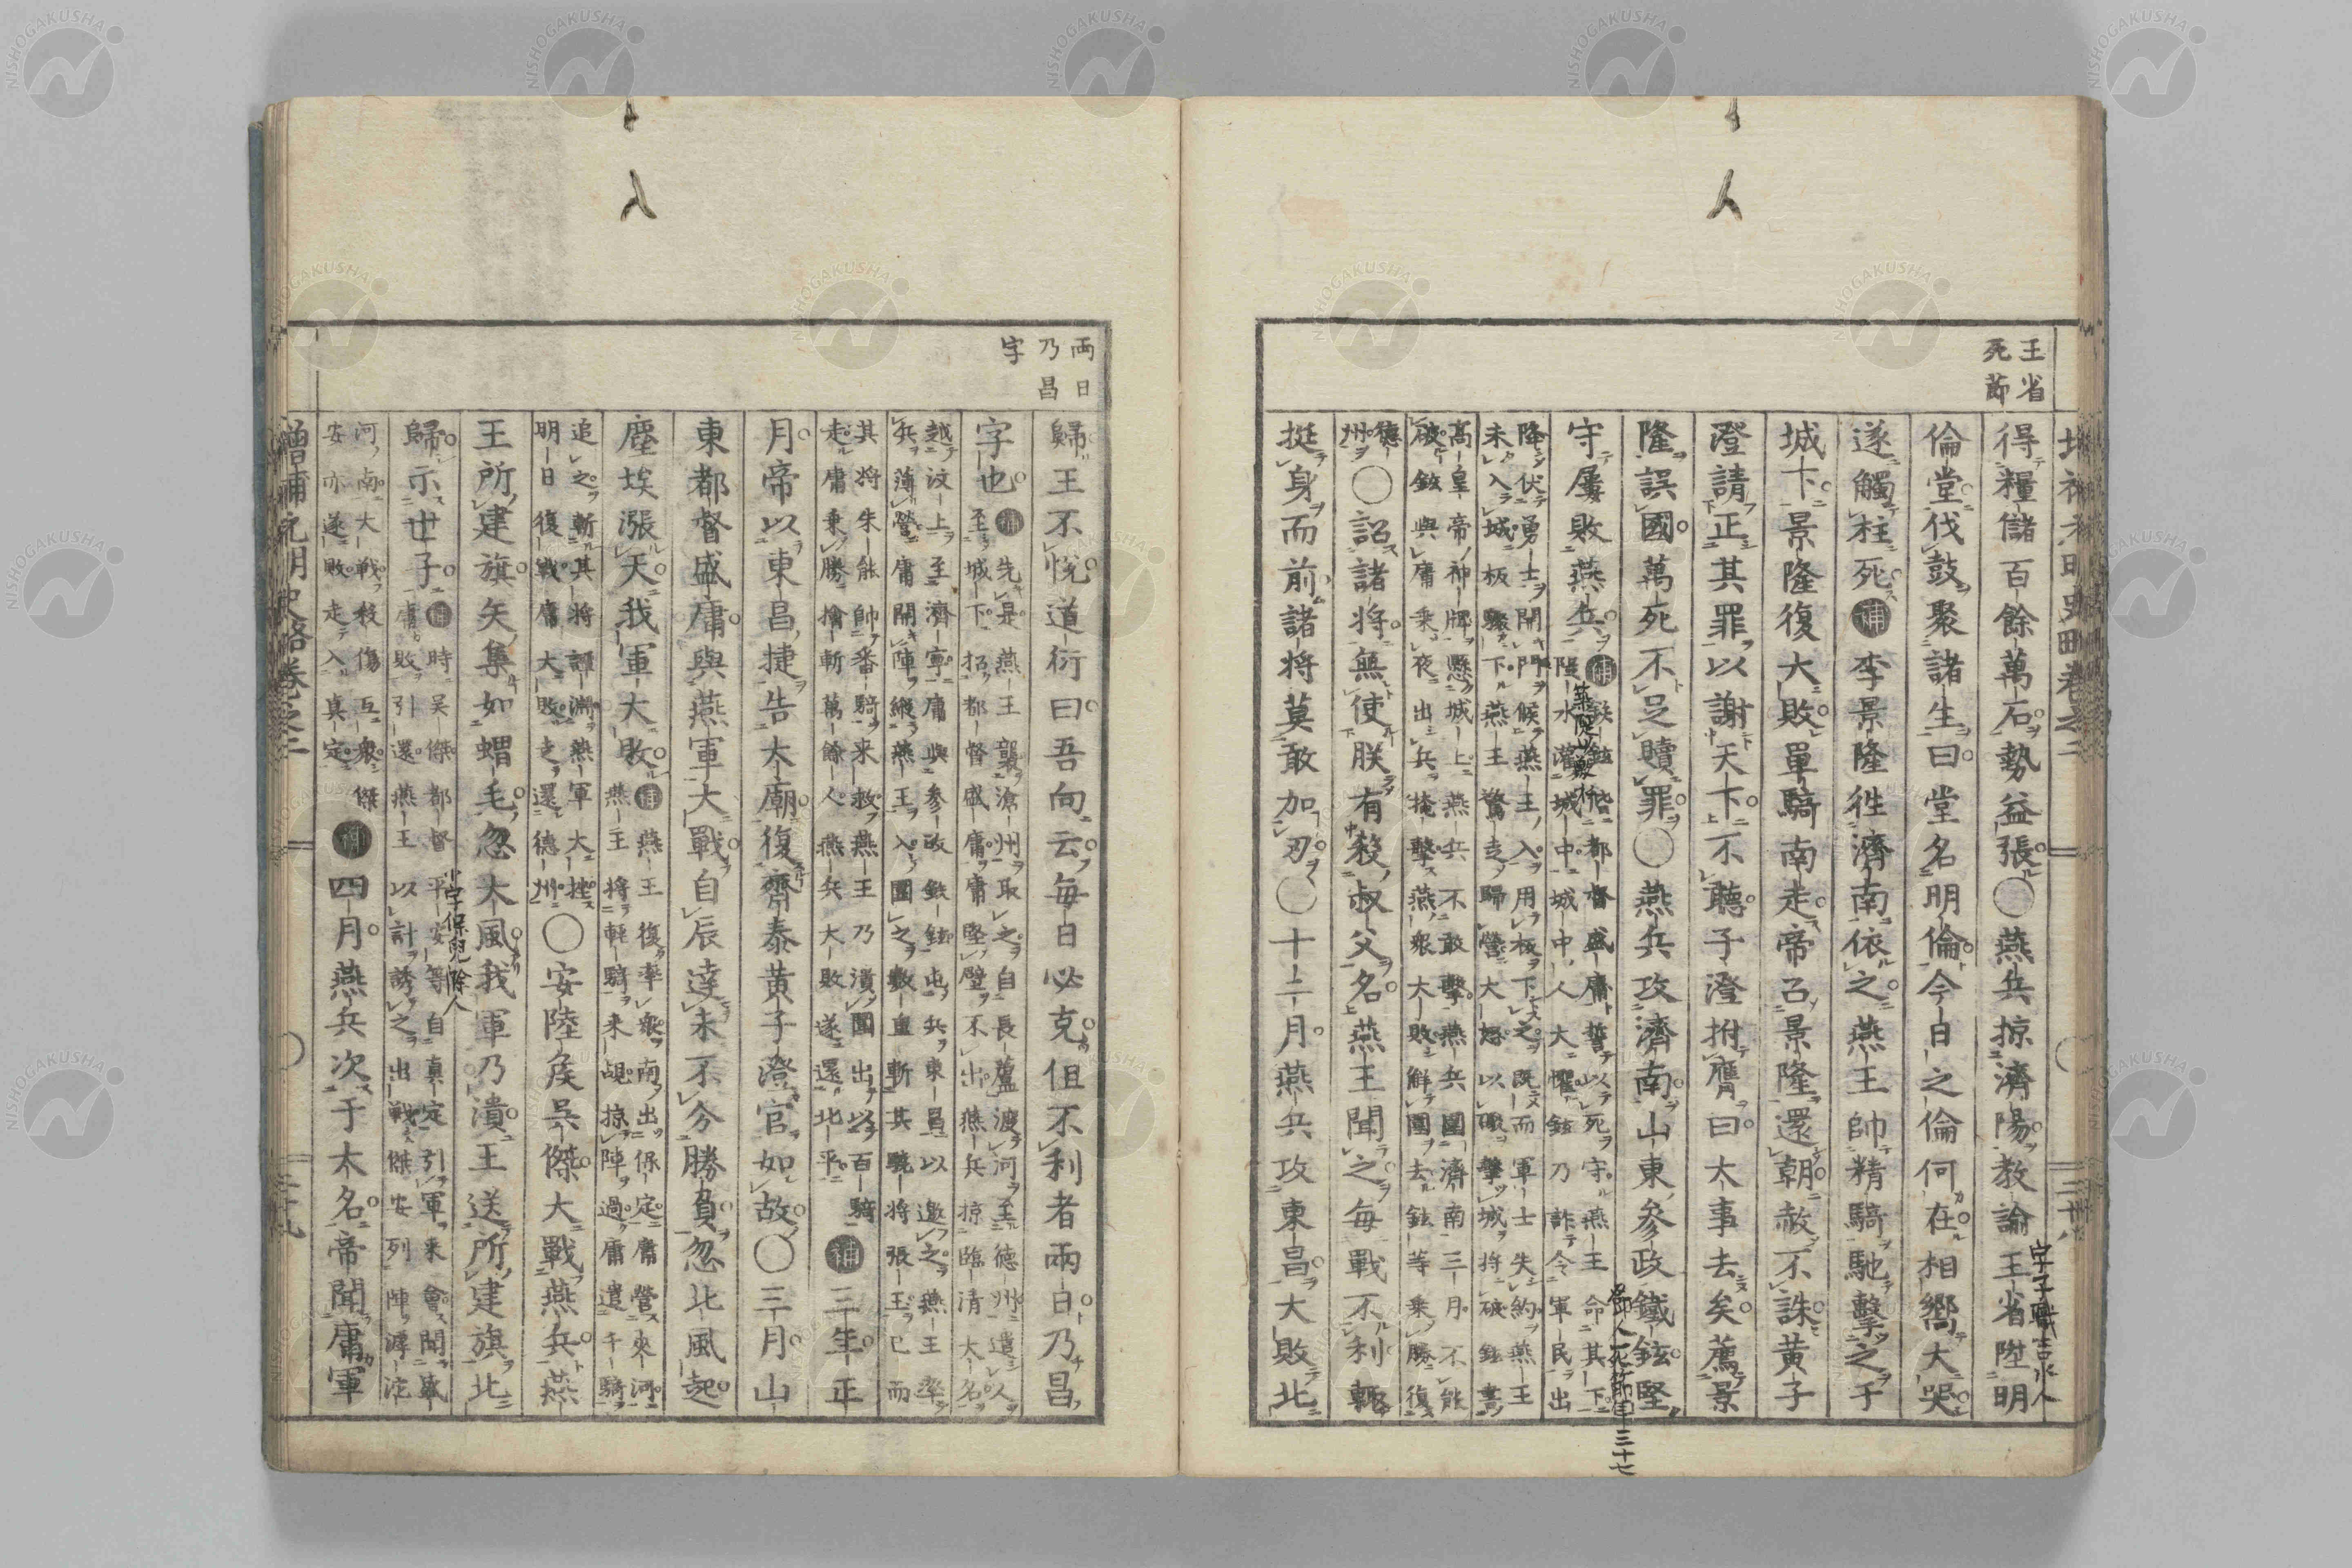 王省
死節
得糧儲百餘萬石勢益張〇燕兵掠濟陽教諭王省陞明
倫堂伐鼓聚諸生曰堂名明倫今日之倫何在相嚮大哭
遂觸柱死補李景隆徃濟南依之燕王帥精騎馳擊之于
城下景隆復大敗單騎南走帝召景隆還朝赦不誅黃子
澄請正其罪以謝天下不聽子澄拊膺曰大事去矣薦景
隆誤國萬死不足贖罪〇燕兵攻濟南山東參政鐵鉉堅
守屢敗燕兵補鉄鉉皆都督盛庸誓以死守燕王命其下
隄水灌城中城中人大懼鉉乃詐令軍民出
降伏勇士開門候燕王入用板下之既而軍士失約燕王
未入城板驟下燕王驚走歸營大怒以礮擊城将破鉉書
高皇帝神牌懸城上燕兵不敢擊燕兵圍濟南三月不能
破鉉與庸乗夜出兵掩擊燕衆大敗解圍去鉉等乗勝復
德
州〇詔諸将無使朕有殺叔父名燕王聞之每戰不利輒
挺身而前諸将莫敢加刃〇十二月燕兵攻東昌大敗北
字子職吉水人
鄧人死節年三十七
両日
乃昌
字
歸王不悅道衍曰吾向云每日必克但不利者兩日乃昌
字也補先是燕王襲滄州取之自長蘆渡河至德州遣人
至城下招都督盛庸庸堅壁不出燕兵掠臨清大名
越汶上至濟寧庸與參政鉄鉉屯兵東昌以邀之燕王率
兵薄營庸開陣縱燕王入圍之數重斬其驍将張玉已而
其将朱能帥番騎来救燕王乃潰圍出以百騎
走庸乗勝擒斬萬餘人燕兵大敗遂還北平補三年正
月帝以東昌捷告太廟復齊泰黃子澄官如故〇三月山
東都督盛庸與燕軍大戰自辰達未不分勝負忽北風起
塵埃漲天我軍大敗補燕王復率衆南出保定庸營來河
燕王将輕騎来覘掠陣過庸遣千騎
追之斬其将譚淵燕軍大挫
明日復戰庸大敗走還德州〇安陸矦吳傑大戰燕兵燕
王所建旗矢集如蝟毛忽大風我軍乃潰王送所建旗北
歸示世子補時吳傑都督平安等自真定引軍来會聞盛
庸敗引還燕王以計誘之出戰傑安列陣滹沱
小字保兒滁人
河南大戰殺傷互衆傑
安亦遂敗走入真定補四月燕兵次于大名帝聞庸軍
增補元明史略卷之二 三十九